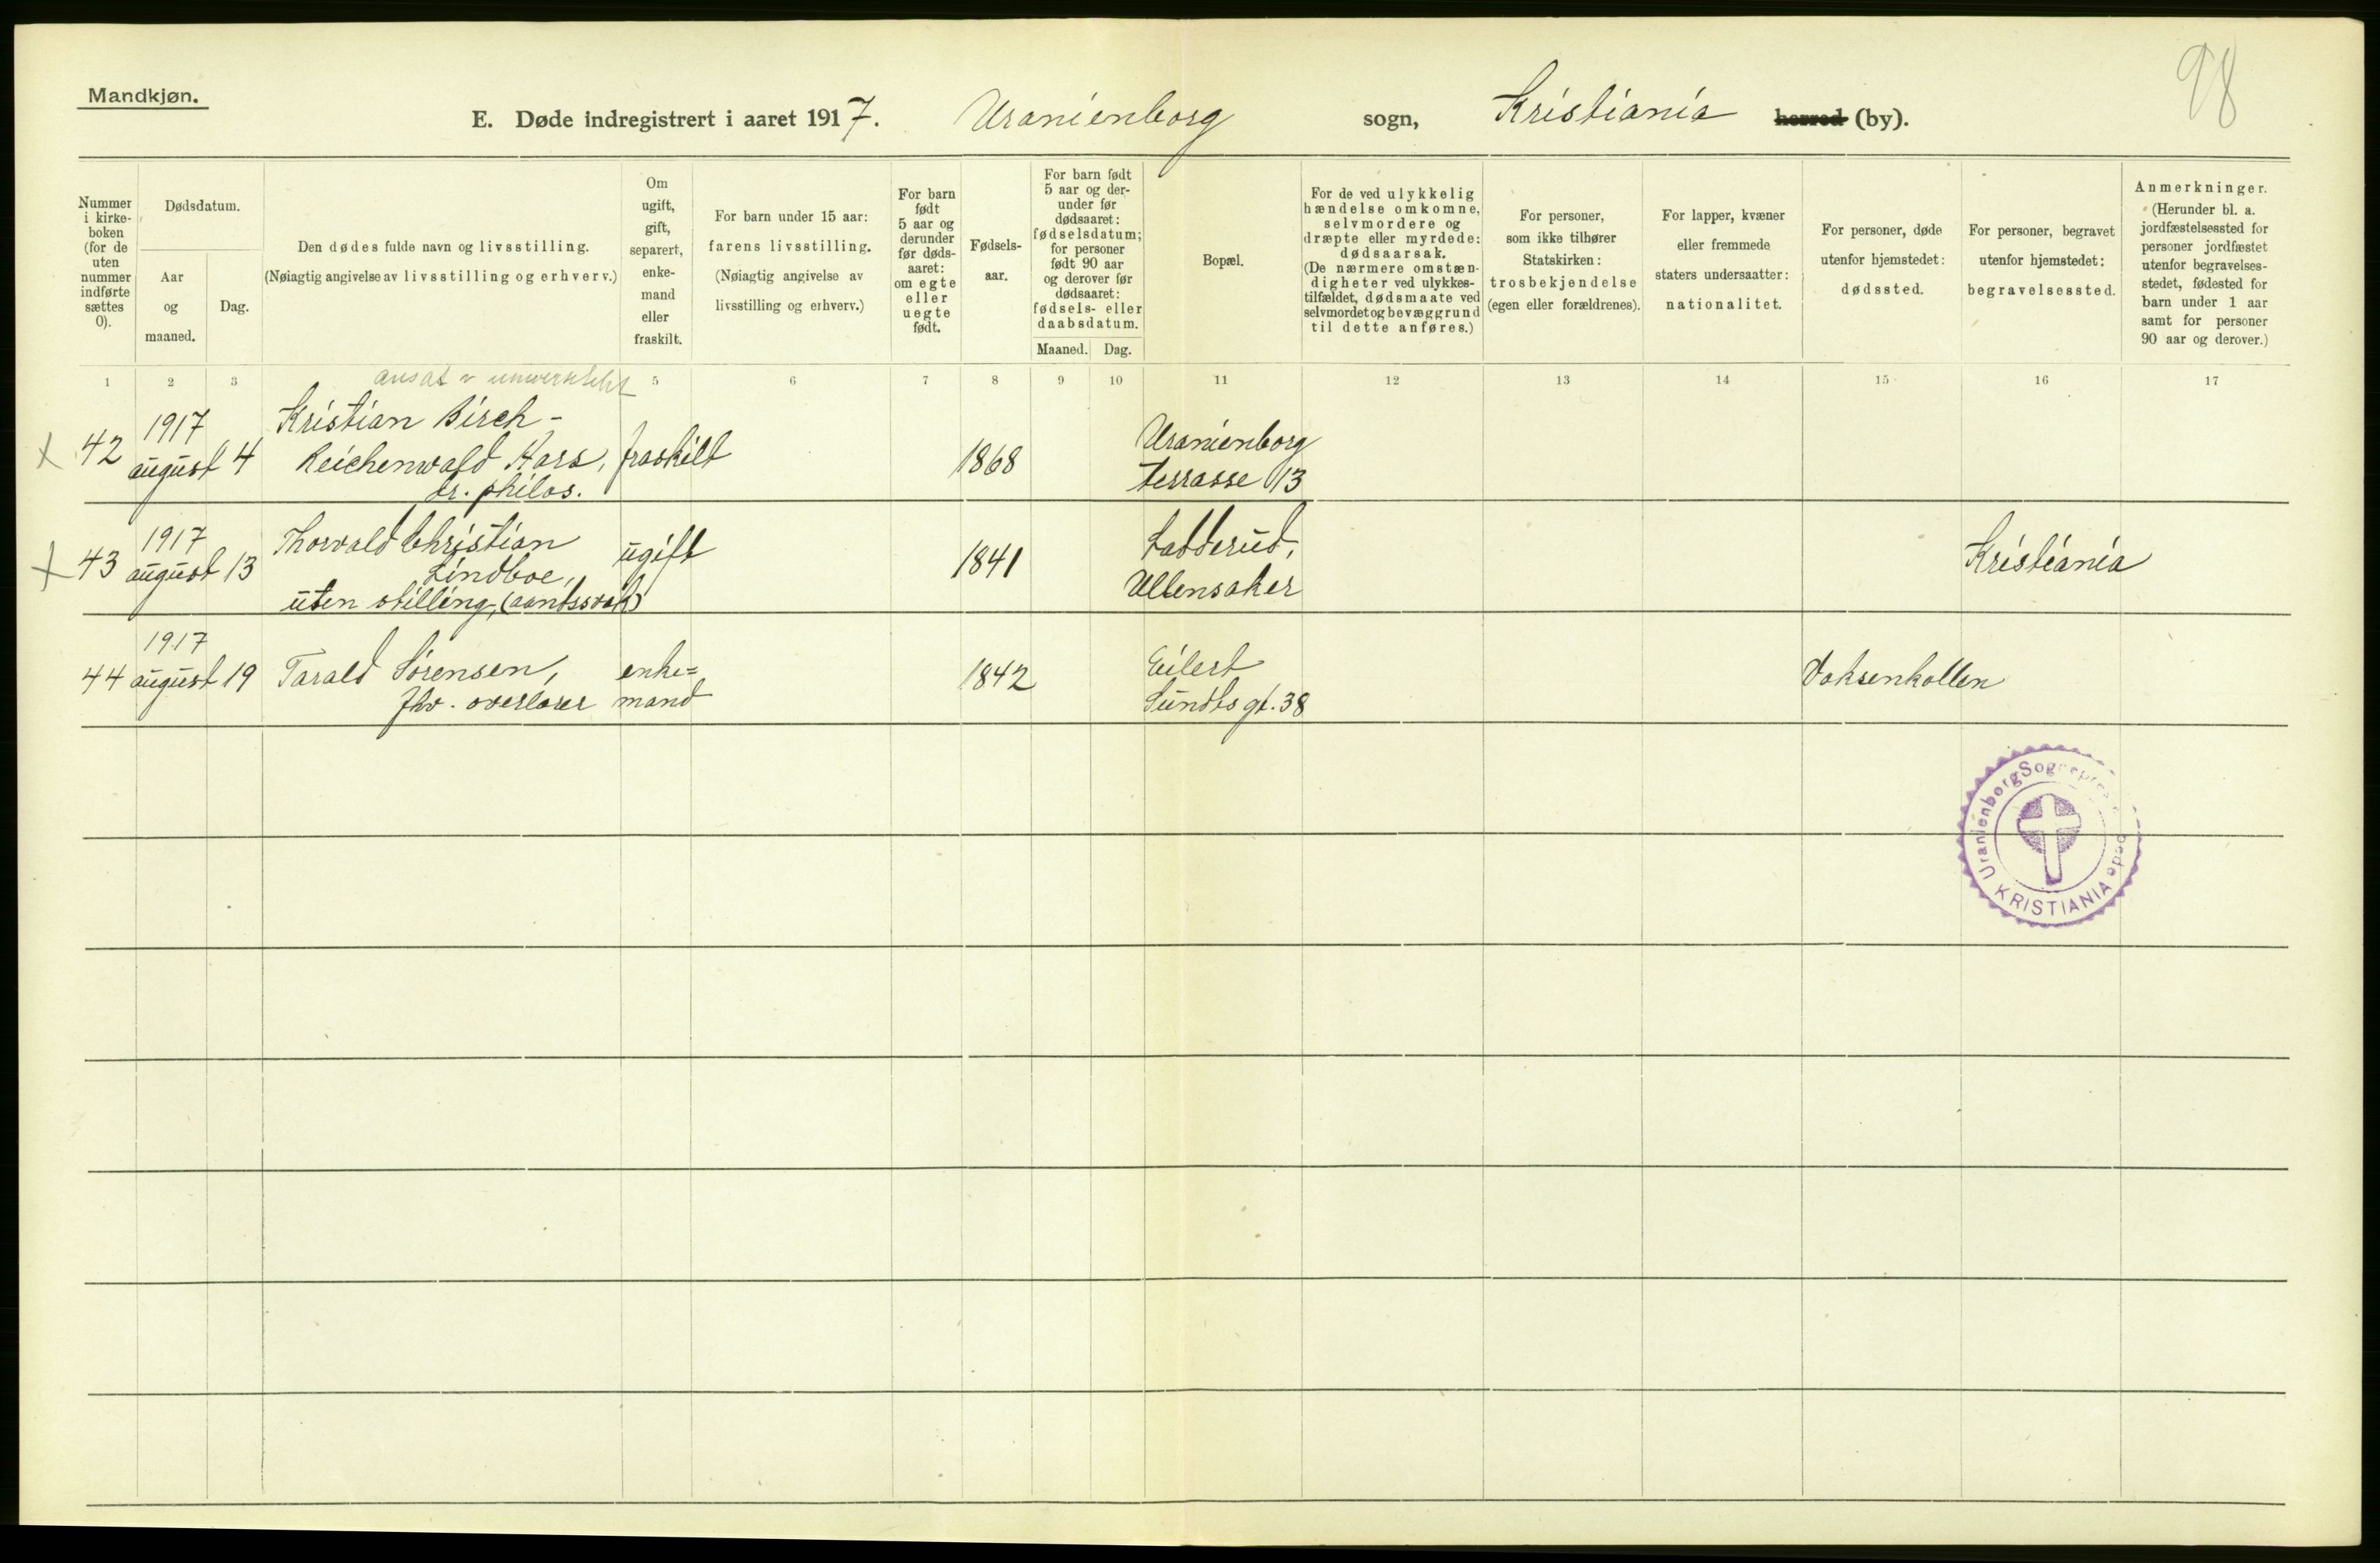 98
Mandkjøn.
E. Døde indregistrert i aaret 1917. Uranienborg sogn, Kristiania herred (by).
Nummer i kirke- boken (for de uten nummer indførte sættes 0).
Dødsdatum.
Aar og maaned.
Dag.
Den dødes fulde navn og livsstilling.
(Nøiagtig angivelse av livsstilling og erhverv.)
Om ugift, gift, separert, enke- mand eller fraskilt.
For barn under 15 aar:
farens livsstilling.
(Nøiagtig angivelse av
livsstilling og erhverv.)
For barn født 5 aar og derunder før døds- aaret: om egte eller uegte født.
Fødsels- aar.
For barn født 5 aar og der- under før dødsaaret: fødselsdatum; for personer født 90 aar og derover før dødsaaret: fødsels- eller daabsdatum.
Maaned. Dag.
Bopæl.
For de ved ulykkelig hændelse omkomne, selvmordere og dræpte eller myrdede: dødsaarsak. (De nærmere omstæn- digheter ved ulykkes- tilfældet, dødsmaate ved selvmordet og bevæggrund til dette anføres.)
For personer, som ikke tilhører Statskirken: trosbekjendelse (egen eller forældrenes).
For lapper, kvæner eller fremmede staters undersaatter: nationalitet.
For personer, døde utenfor hjemstedet: dødssted.
For personer, begravet utenfor hjemstedet: begravelsessted.
Anmerkninger. (Herunder bl. a. jordfæstelsessted for personer jordfæstet utenfor begravelses- stedet, fødested for barn under 1 aar samt for personer 90 aar og derover.)
1 2 3 5 6 7 8 9 10 11 12 13 14 15 16 17
ansat v
1917 Kristian Birch- Uranienborg
42 august 4 Reichenwald Aars, fraskilt 1868 terrasse 13
dr. philos.
1917 Thorvald Christian Ladderud,
43 august 13 Lindboe, ugift 1841 Ullensaker Kristiania
uten stilling, (aandssvak)
1917
44 august 19 Tarald Sørensen, enke= 1842 Eilert Voksenkollen
fhv. overlærer mand Sundts gt. 38
Uranienborg Sogneprestembede
KRISTIANIA